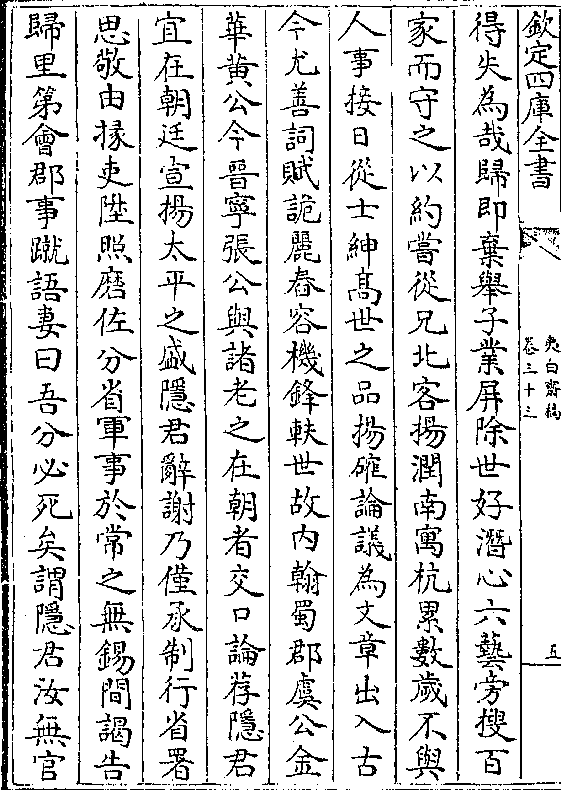 欽定四庫全書
夷白齋稿
卷三十三
五
得失為哉歸即棄舉子業屏除世好潛心六藝旁搜百
家而守之以約嘗從兄北客揚潤南寓杭累數歲不與
人事接日從士紳髙世之品揚確論議為文章出入古
今尤善詞賦詭麗舂容機鋒軼世故内翰蜀郡虞公金
華黄公今晉寧張公與諸老之在朝者交口論荐隱君
宜在朝廷宣揚太平之盛隱君辭謝乃僅承制行省署
思敬由掾吏陞照磨佐分省軍事於常之無錫間謁告
歸里第會郡事蹴語妻曰吾分必死矣謂隱君汝無官